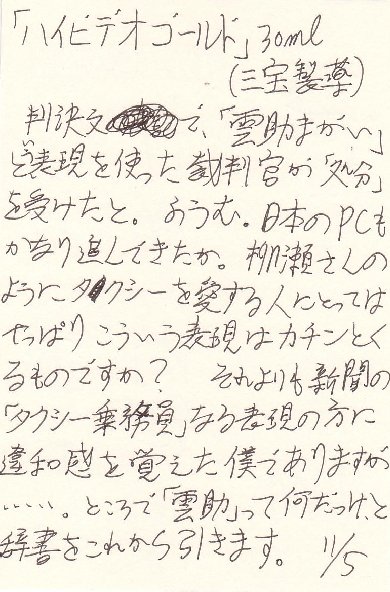 「ハイビデオゴールド」30ml
(三宝製薬)
判決文で、「雲助まがい」
と表現を使った裁判官が「処分」
を受けたと。ようむ。日本のPCも
かなり進んできたか。柳瀬さんの
ようにタクシーを愛する人にとっては
やっぱりこういう表現はカチンとく
るものですか? それよりも新聞の
「タクシー乗務員」なる表現の方に
違和感を覚えた僕でありますが
……。ところで「雲助」って何だっけ、と
辞書をこれから引きます。 11/5